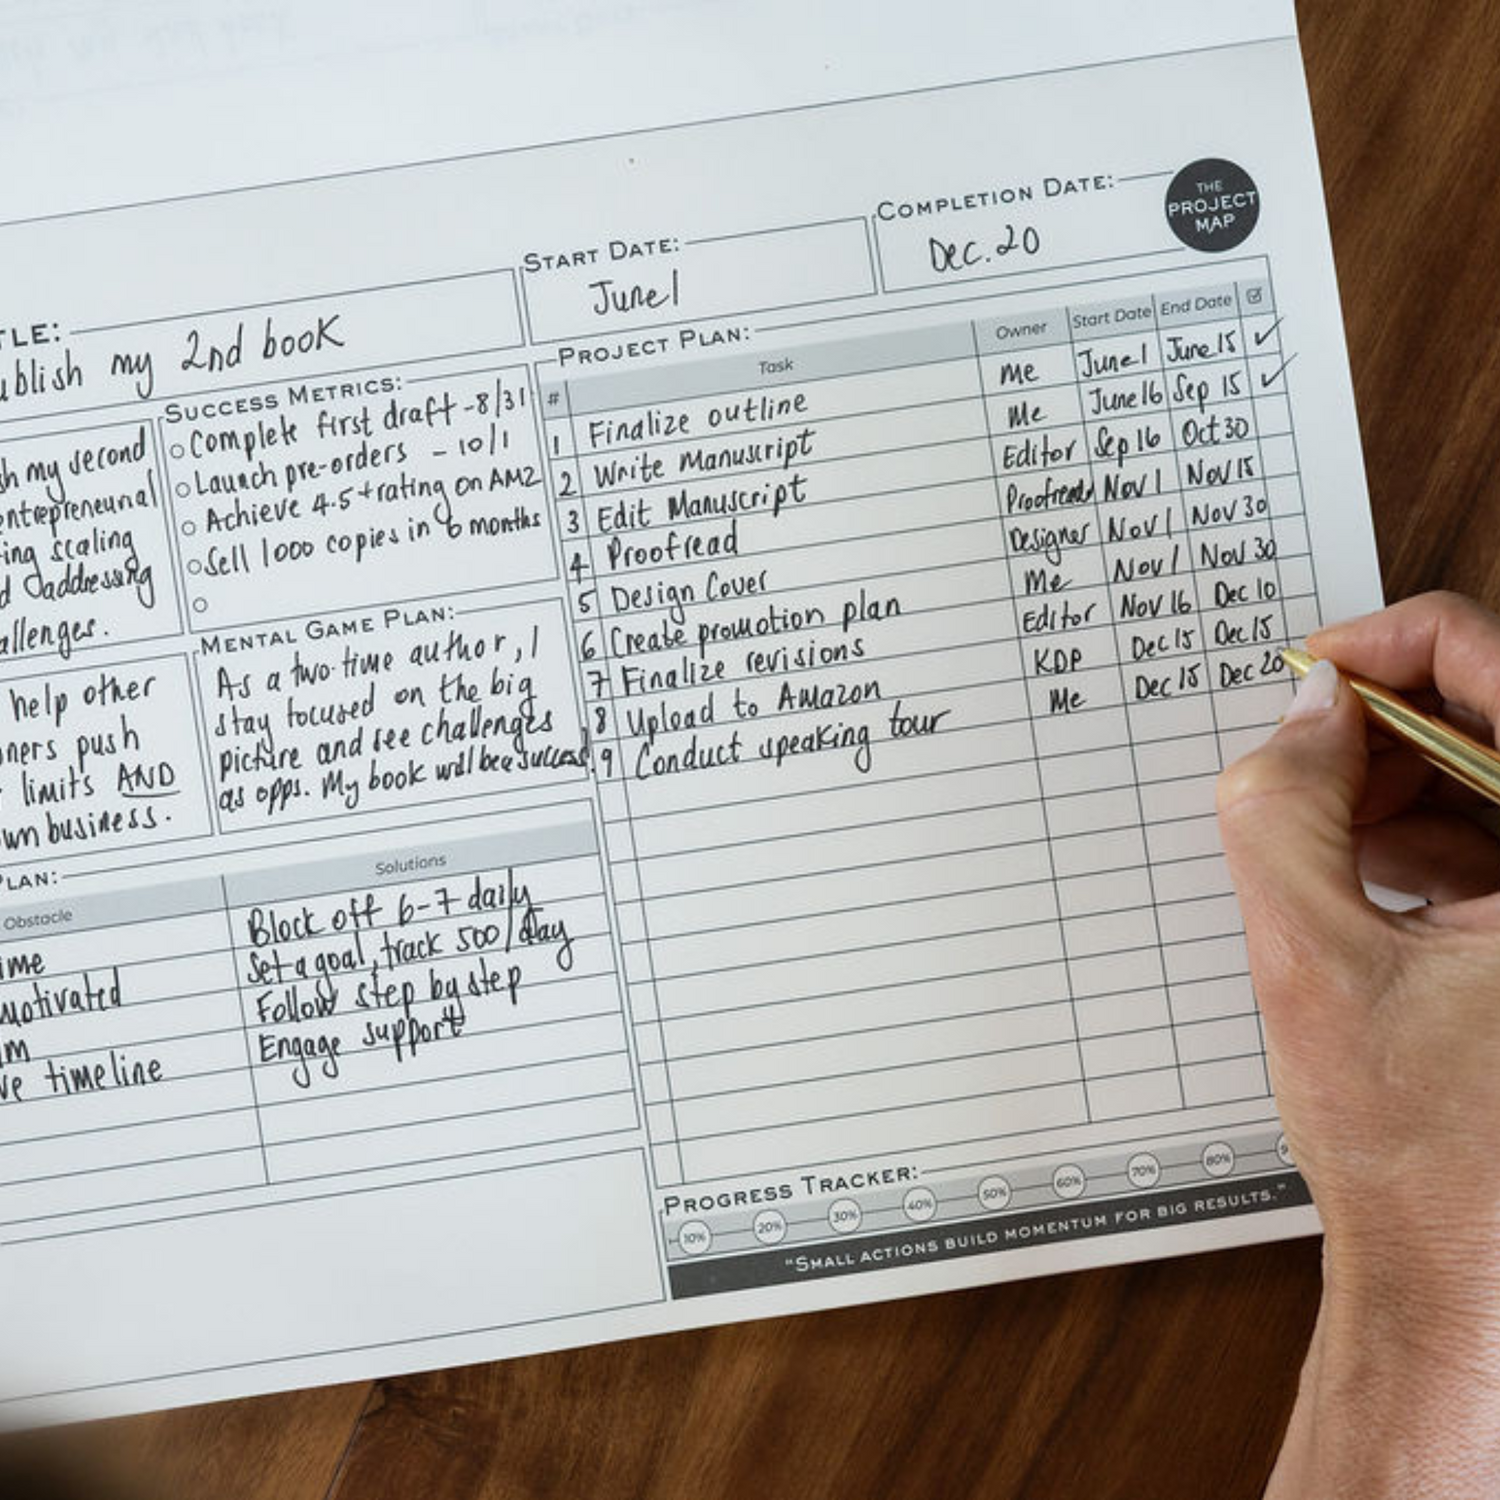 START DATE:
June 1
COMPLETION DATE:
Dec. 20
THE
PROJECT
MAP
TLE:
ublish my 2nd book
sh my second
entrepreneurial
ing scaling
d addressing
allenges.
SUCCESS METRICS:
Complete first draft - 8/31
Launch pre-orders - 10/1
Achieve 4.5+ rating on AMZ
Sell 1000 copies in 6 months
help other
ners push
limits AND
wn business.
MENTAL GAME PLAN:
As a two-time author, I
stay focused on the big
picture and see challenges
as opps. My book will be a success!
PLAN:
Obstacle Solutions
ime Block off 6-7 daily
motivated Set a goal, track 500/day
m Follow step by step
ve timeline Engage support
PROJECT PLAN:
# Task Owner Start Date End Date
1 Finalize outline Me June 1 June 15 ✓
2 Write Manuscript Me June 16 Sep 15 ✓
3 Edit Manuscript Editor Sep 16 Oct 30
4 Proofread Nov 1 Nov 15
5 Design Cover Designer Nov 1 Nov 30
6 Create promotion plan Me Nov 1 Nov 30
7 Finalize revisions Editor Nov 16 Dec 10
8 Upload to Amazon KDP Dec 15 Dec 15
9 Conduct speaking tour Me Dec 15 Dec 20
PROGRESS TRACKER:
10% 20% 30% 40% 50% 60% 70% 80% 9
"SMALL ACTIONS BUILD MOMENTUM FOR BIG RESULTS."